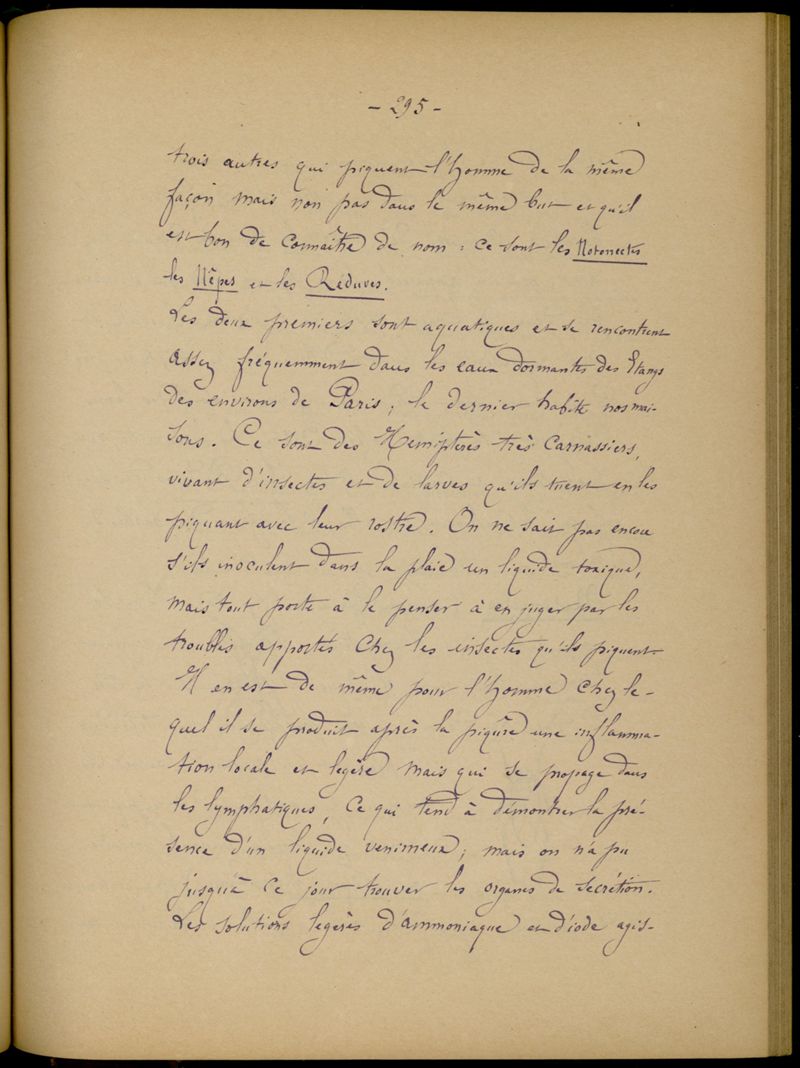 - 295 -
trois autres qui piquent l'homme de la même
façon mais non pas dans le même but et qu'il
est bon de connaître de nom : ce sont les Notonectes
les Nêpes et les Réduves.
Les deux premiers sont aquatiques et se rencontrent
assez fréquemment dans les eaux dormantes des Etangs
des environs de Paris ; le dernier habite nos mai-
sons. Ce sont des Hemiptères très carnassiers,
vivant d'insectes et de larves qu'ils tuent en les
piquant avec leur rostre. On ne sait pas encore
s'ils inoculent dans la plaie un liquide toxique,
mais tout porte à le penser à en juger par les
troubles apportés chez les insectes qu'ils piquent.
Il en est de même pour l'homme chez le-
quel il se produit après la piqûre une inflamma-
tion locale et legère mais qui se propage dans
les lymphatiques, ce qui tend à démontrer la pré-
sence d'un liquide venimeux ; mais on n'a pu
jusqu'à ce jour trouver les organes de secrétion.
Les solutions legères d'ammoniaque et d'iode agis-